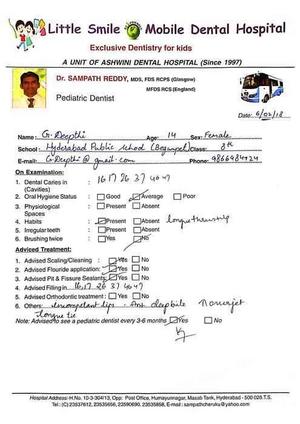 Little Smile Mobile Dental Hospital
Exclusive Dentistry for kids
A UNIT OF ASHWINI DENTAL HOSPITAL (Since 1997)
Dr. SAMPATH REDDY, MDS, FDS RCPS (Glasgow)
MFDS RCS (England)
Pediatric Dentist
Date: 6/02/18
Name: G. Deepthi Age: 14 Sex: Female
School: Hyderabad Public school (Begumpet) Class: 8th
E-mail: G.Deepthi @ gmail.com Phone:
On Examination:
1. Dental Caries in (Cavities) : 16 17 26 37 46 47
2. Oral Hygiene Status : Good Average Poor
3. Physiological Spaces : Present Absent
4. Habits : Present Absent tongue thrusting
5. Irregular teeth : Present Absent
6. Brushing twice : Yes No
Advised Treatment:
1. Advised Scaling/Cleaning : Yes No
2. Advised Flouride application: Yes No
3. Advised Pit & Fissure Sealants: Yes No
4. Advised Filling in 16 17 26 37 46 47
5. Advised Orthodontic treatment : Yes No
6. Others: incompetent lips - Ant deep bite
tongue tie
Note: Advised to see a pediatric dentist every 3-6 months Yes No
Hospital Address: H.No. 10-3-304/13, Opp: Post Office, Humayunnagar, Masab Tank, Hyderabad - 500 028 T.S.
Tel: (C) 23537612, 23535656, 23590690, 23535858. E-mail: sampathcheruku@yahoo.com